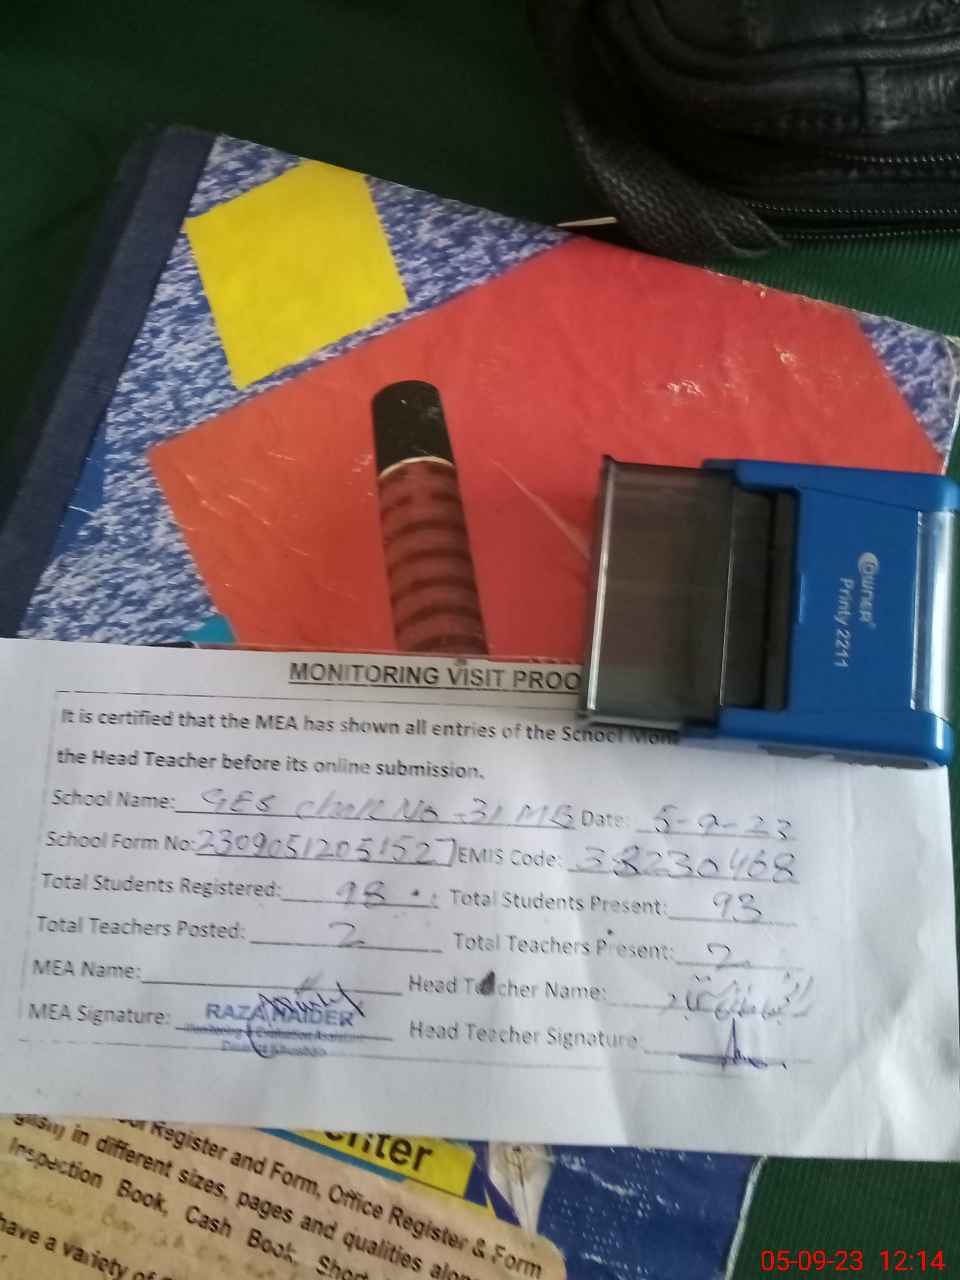 COLOP®
Printy 2211
MONITORING VISIT PROO
It is certified that the MEA has shown all entries of the School Moni
the Head Teacher before its online submission.
School Name: GES Chak No 31 MB Date: 5-9-23
School Form No: 23090512051527 EMIS Code: 38230468
Total Students Registered: 98 Total Students Present: 93
Total Teachers Posted: 2 Total Teachers Present: 2
MEA Name: Head Teacher Name:
MEA Signature: RAZA HAIDER Head Teacher Signature
Monitoring & Evaluation Assistant
District Khushab
enter
Register and Form, Office Register & Form
glish) in different sizes, pages and qualities alon
Inspection Book, Cash Book, Short
have a variety of
05-09-23 12:14